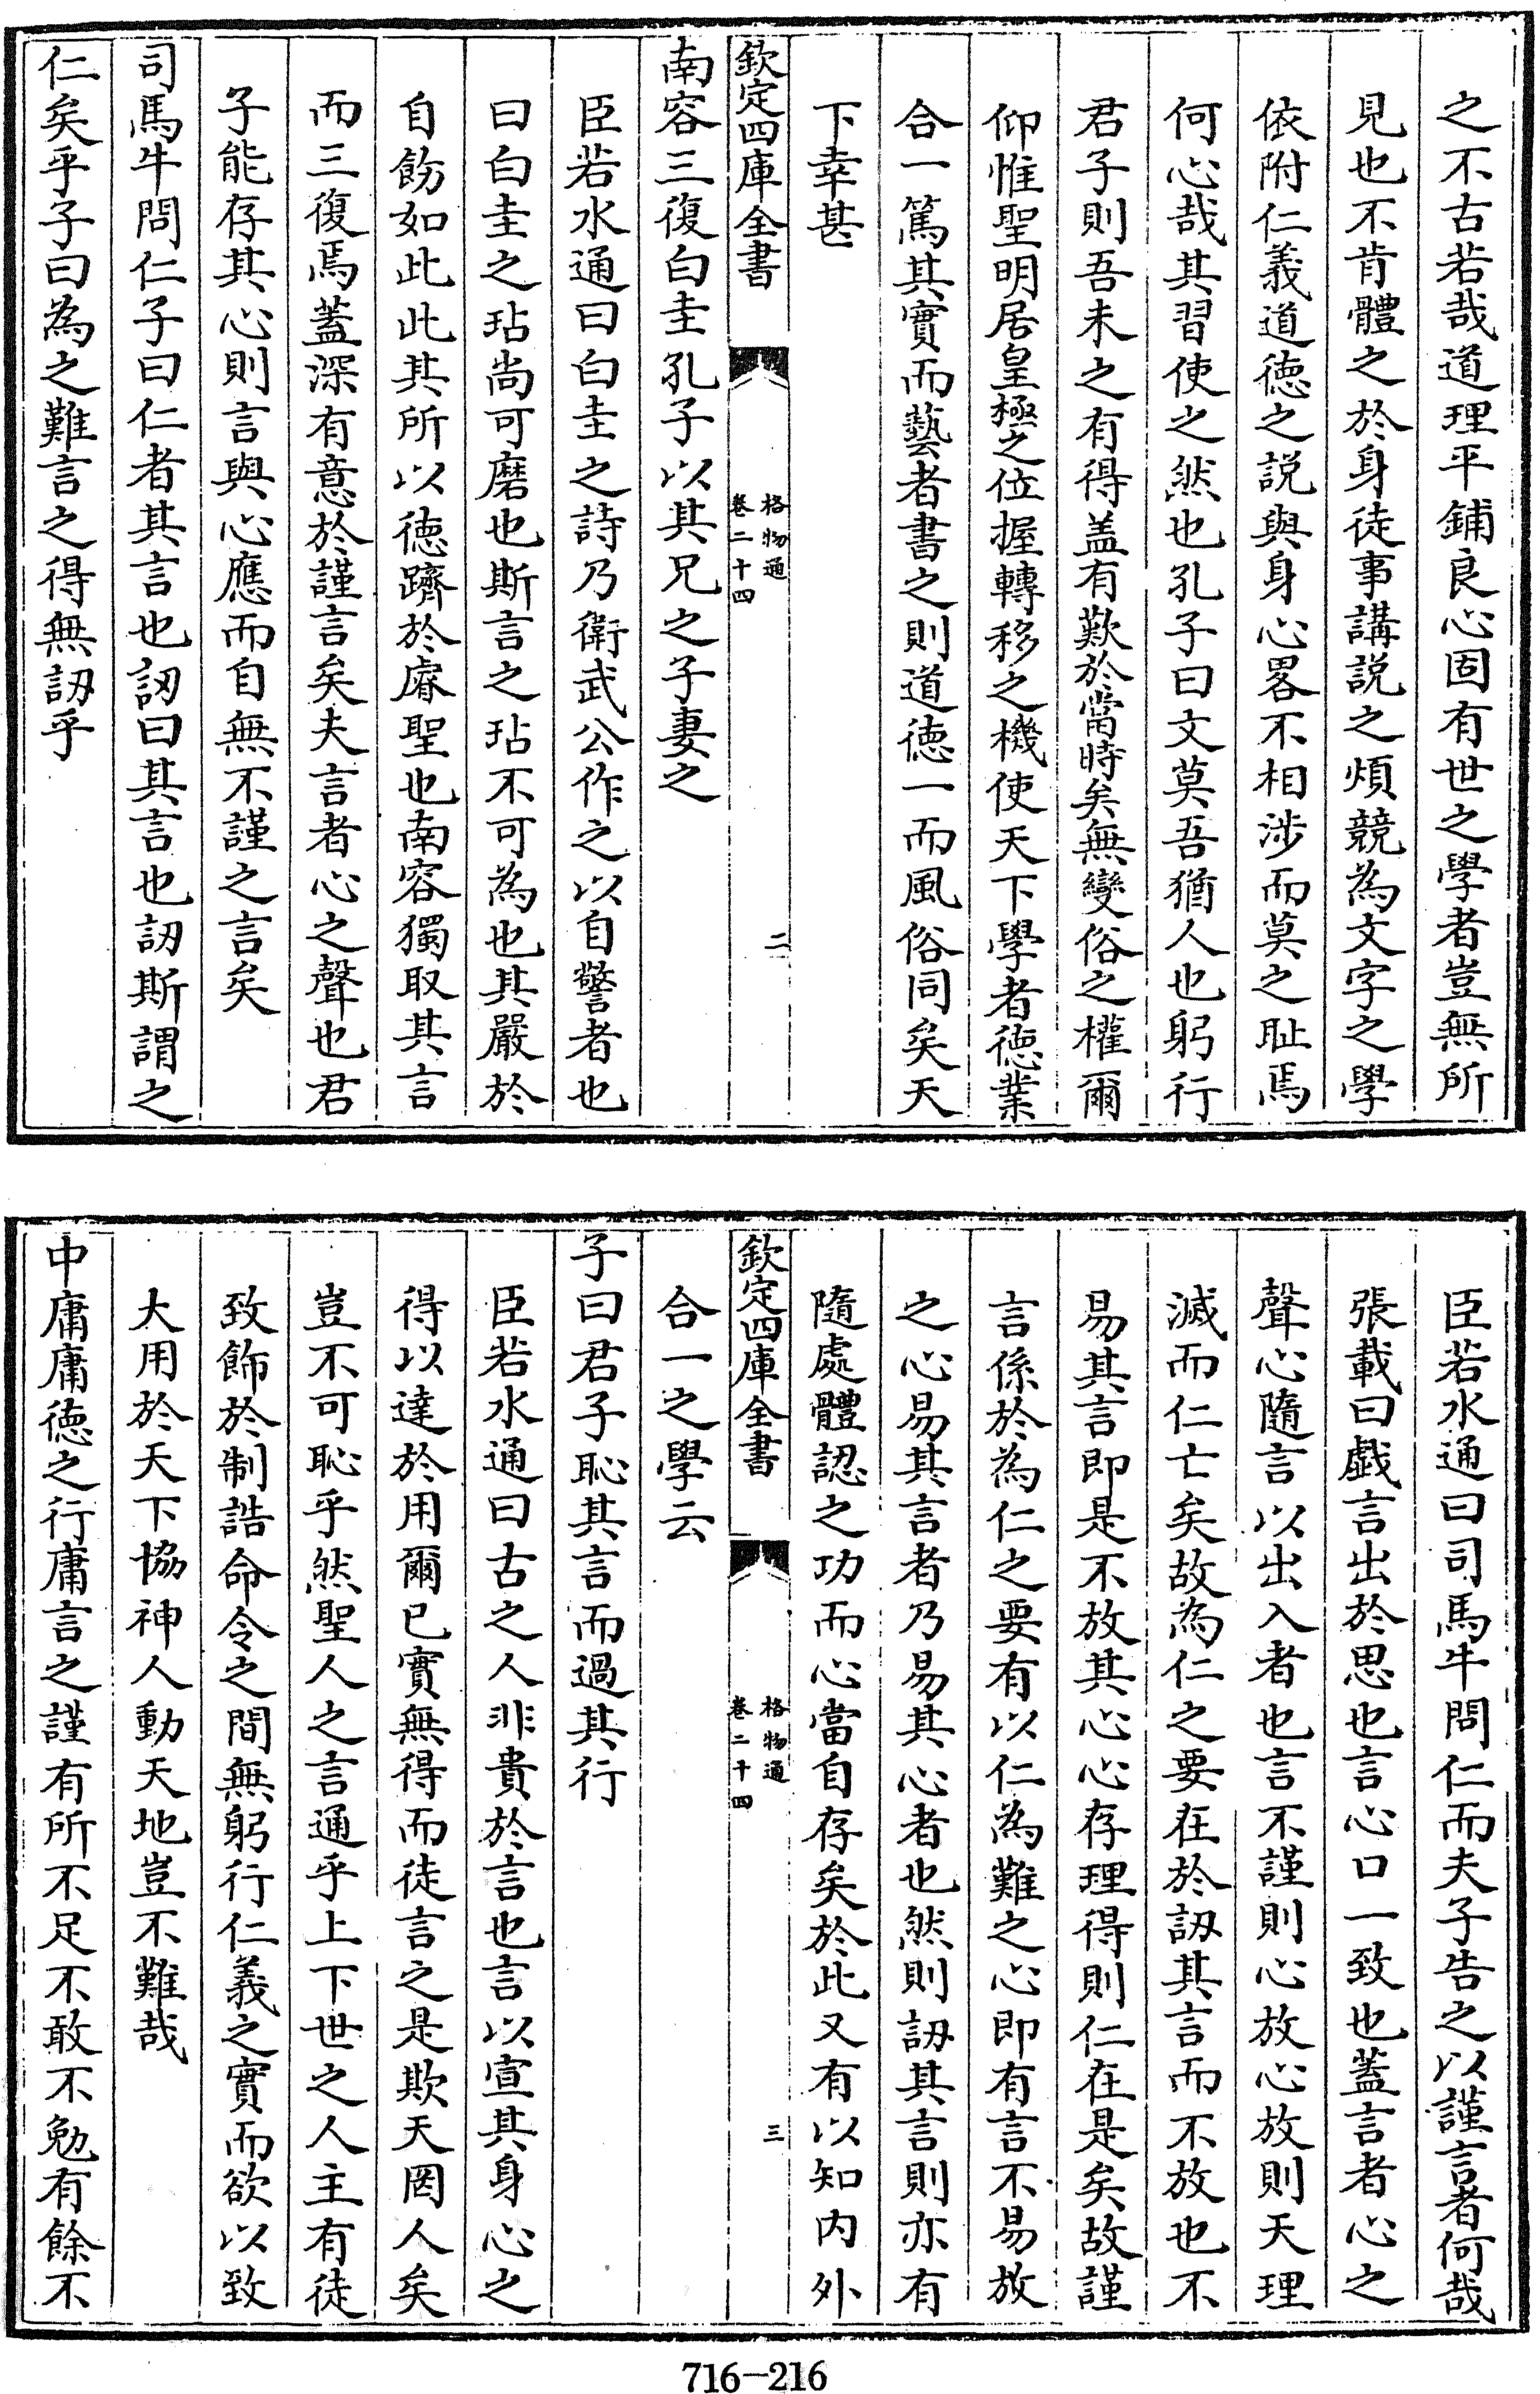 之不古若哉道理平鋪良心固有世之學者豈無所
見也不肯體之於身徒事講説之煩競為文字之學
依附仁義道徳之説與身心畧不相涉而莫之耻焉
何心哉其習使之然也孔子曰文莫吾猶人也躬行
君子則吾未之有得盖有歎於當時矣無變俗之權爾
仰惟聖明居皇極之位握轉移之機使天下學者徳業
合一篤其實而藝者書之則道徳一而風俗同矣天
下幸甚
欽定四庫全書
格物通
卷二十四
二
南容三復白圭孔子以其兄之子妻之
臣若水通曰白圭之詩乃衛武公作之以自警者也
曰白圭之玷尚可磨也斯言之玷不可為也其嚴於
自飭如此此其所以徳躋於睿聖也南容獨取其言
而三復焉蓋深有意於謹言矣夫言者心之聲也君
子能存其心則言與心應而自無不謹之言矣
司馬牛問仁子曰仁者其言也訒曰其言也訒斯謂之
仁矣乎子曰為之難言之得無訒乎
臣若水通曰司馬牛問仁而夫子告之以謹言者何哉
張載曰戲言出於思也言心口一致也蓋言者心之
聲心隨言以出入者也言不謹則心放心放則天理
滅而仁亡矣故為仁之要在於訒其言而不放也不
易其言即是不放其心心存理得則仁在是矣故謹
言係於為仁之要有以仁為難之心即有言不易放
之心易其言者乃易其心者也然則訒其言則亦有
隨處體認之功而心當自存矣於此又有以知内外
欽定四庫全書
格物通
卷二十四
三
合一之學云
子曰君子恥其言而過其行
臣若水通曰古之人非貴於言也言以宣其身心之
得以達於用爾已實無得而徒言之是欺天罔人矣
豈不可恥乎然聖人之言通乎上下世之人主有徒
致飾於制誥命令之間無躬行仁義之實而欲以致
大用於天下協神人動天地豈不難哉
中庸庸徳之行庸言之謹有所不足不敢不勉有餘不
716-216